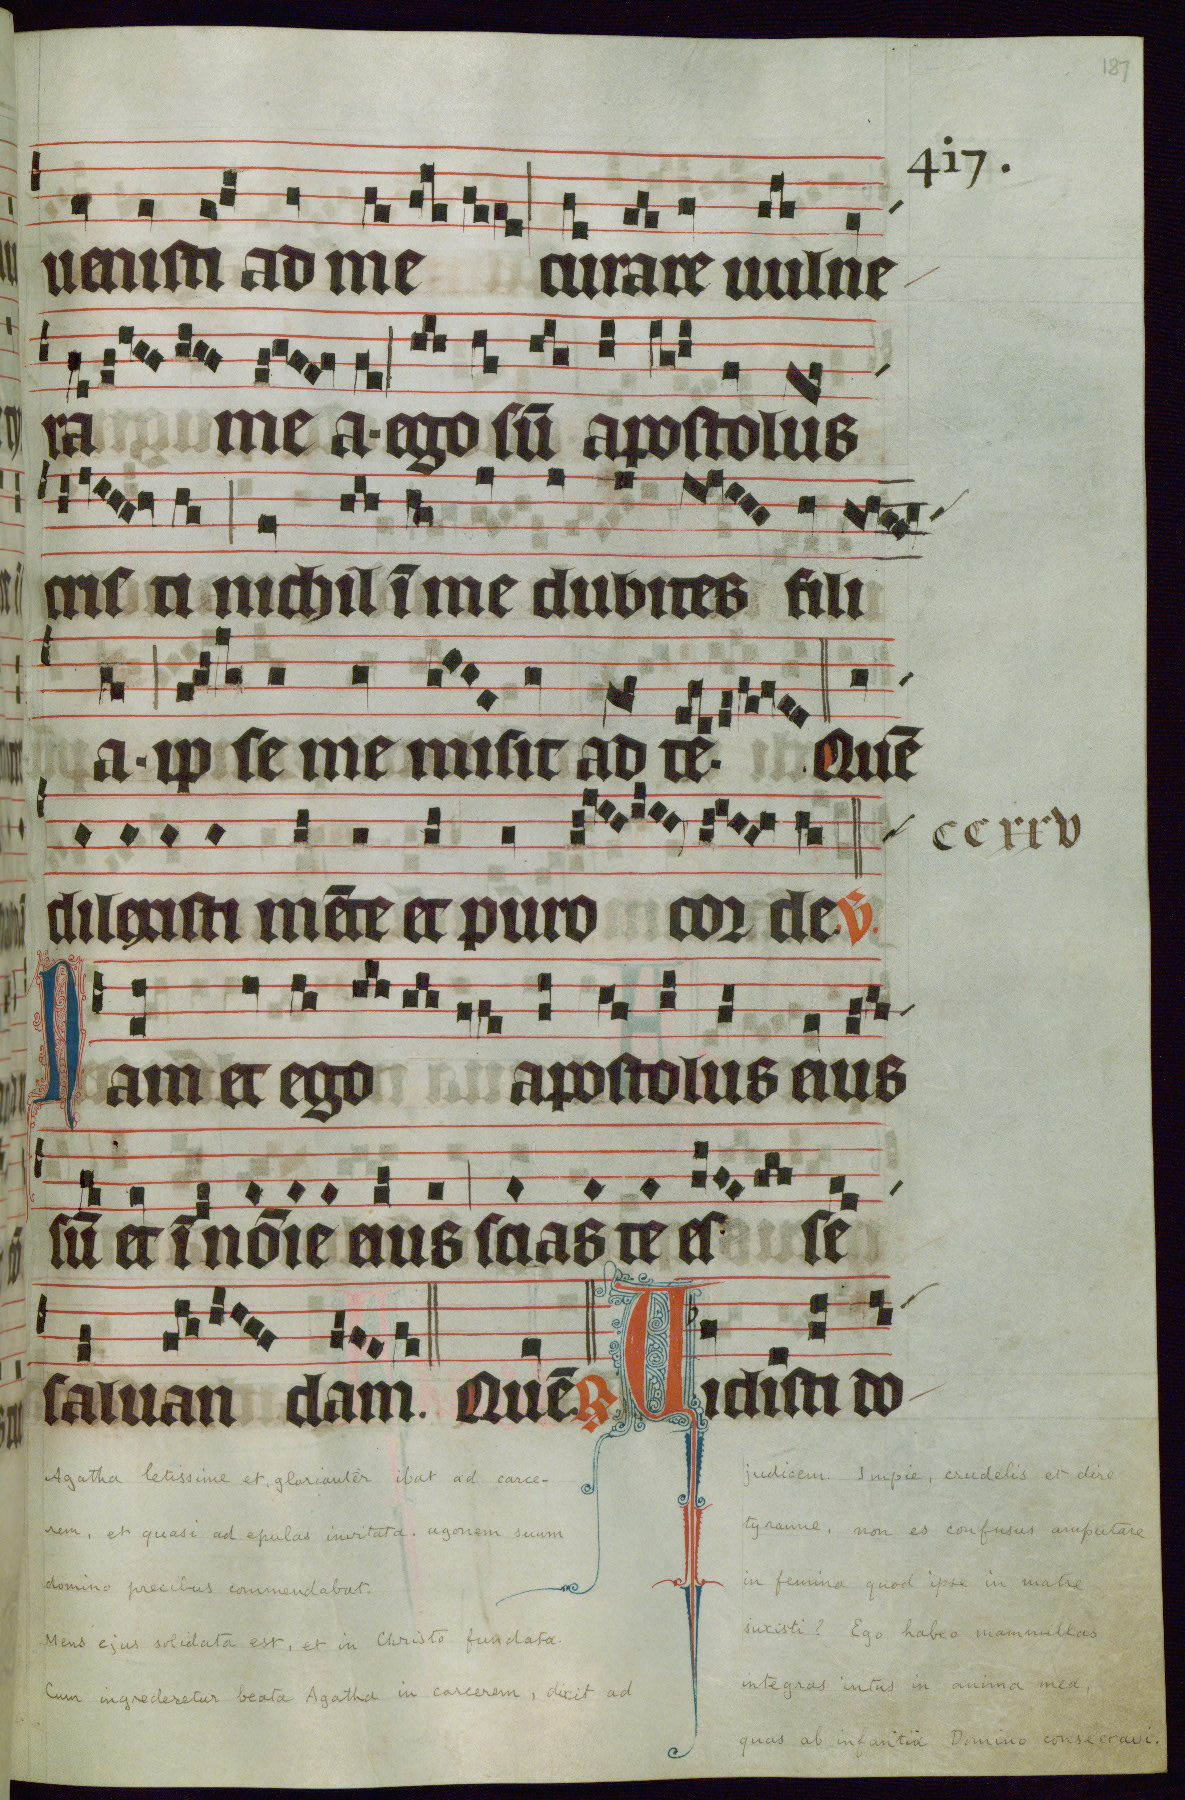 187
417.
uenisti ad me curare uulne
ra me a. ego sũ apostolus
cris ti nichil ĩ me dubites fili
a. ip se me misit ad te. Quẽ
ccxxv
dilexisti mẽte et puro cor de. V.
Nam et ego apostolus eius
sũ et ĩ nõie eius scias te es se
saluandam. Quẽ R Uidisti do
Agatha letissime et glorianter ibat ad carce-
rem, et quasi ad epulas invitata. agonem suum
domino precibus commendabat.
Mens ejus solidata est, et in Christo fundata.
Cum ingrederetur beata Agatha in carcerem, dixit ad
judicem. Impie, crudelis et dire
tyranne, non es confusus amputare
in femina quod ipse in matre
suxisti? Ego habeo mammillas
integras intus in anima mea,
quas ab infantia Domino consecravi.